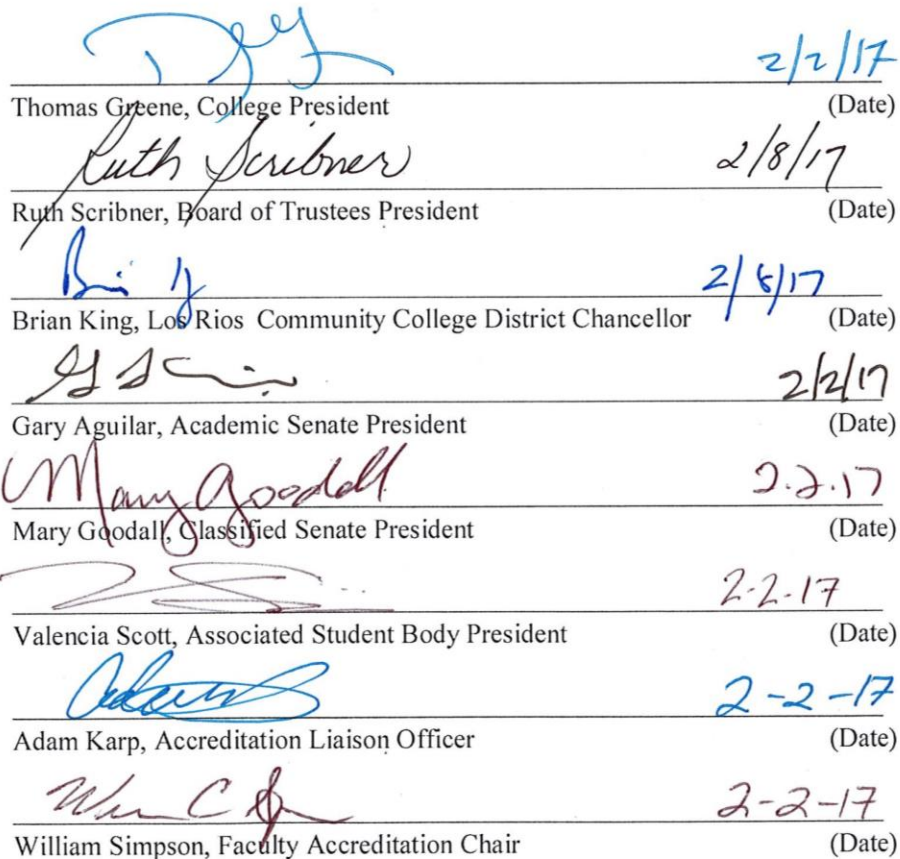 2/2/17
Thomas Greene, College President (Date)
Ruth Scribner 2/8/17
Ruth Scribner, Board of Trustees President (Date)
2/8/17
Brian King, Los Rios Community College District Chancellor (Date)
2/2/17
Gary Aguilar, Academic Senate President (Date)
Mary Goodall 2.2.17
Mary Goodall, Classified Senate President (Date)
2-2-17
Valencia Scott, Associated Student Body President (Date)
2-2-17
Adam Karp, Accreditation Liaison Officer (Date)
2-2-17
William Simpson, Faculty Accreditation Chair (Date)